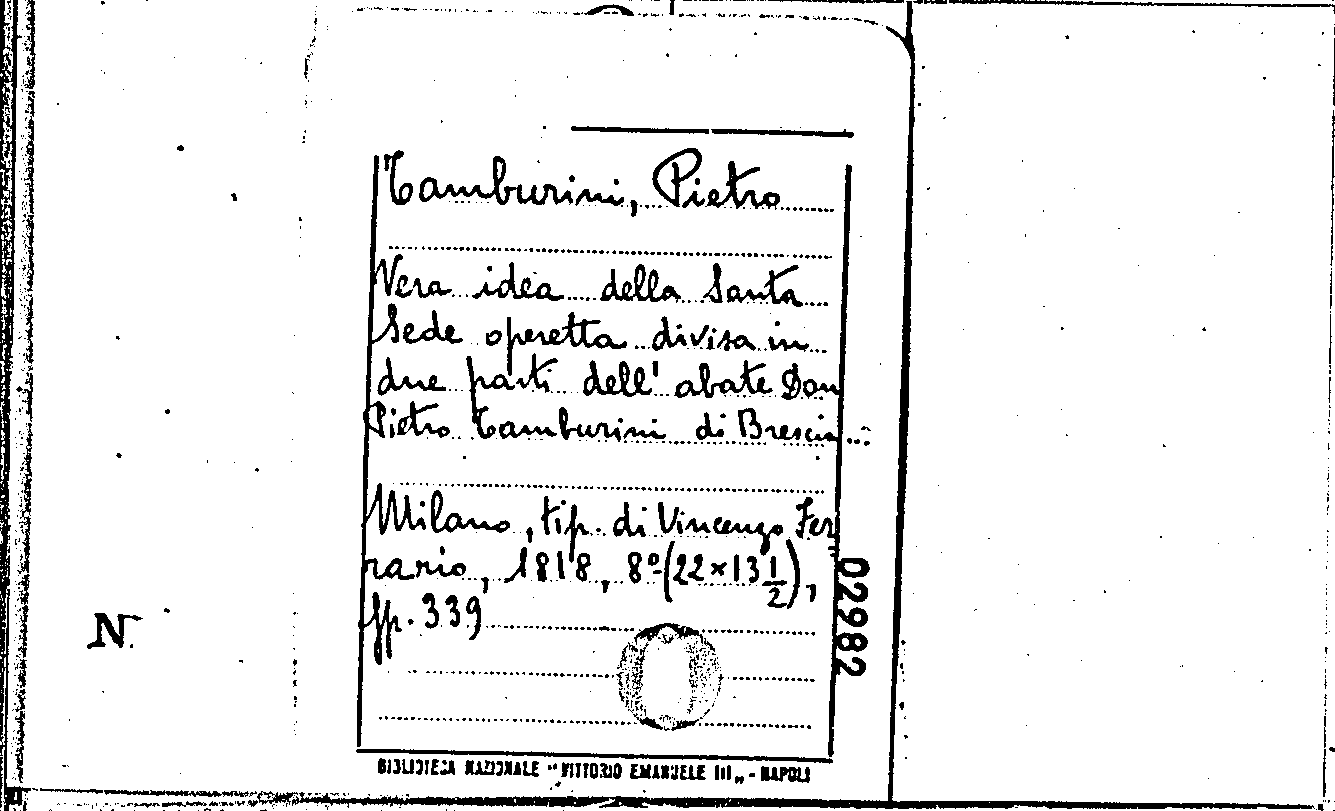 Tamburini, Pietro
Vera idea della Santa
Sede operetta divisa in
due parti dell' abate Don
Pietro Tamburini di Brescia...
Milano, tip. di Vincenzo Fer
rario, 1818, 8º (22×13 1/2),
pp. 339
N.
02982
BIBLIOTECA NAZIONALE "VITTORIO EMANUELE III" - NAPOLI